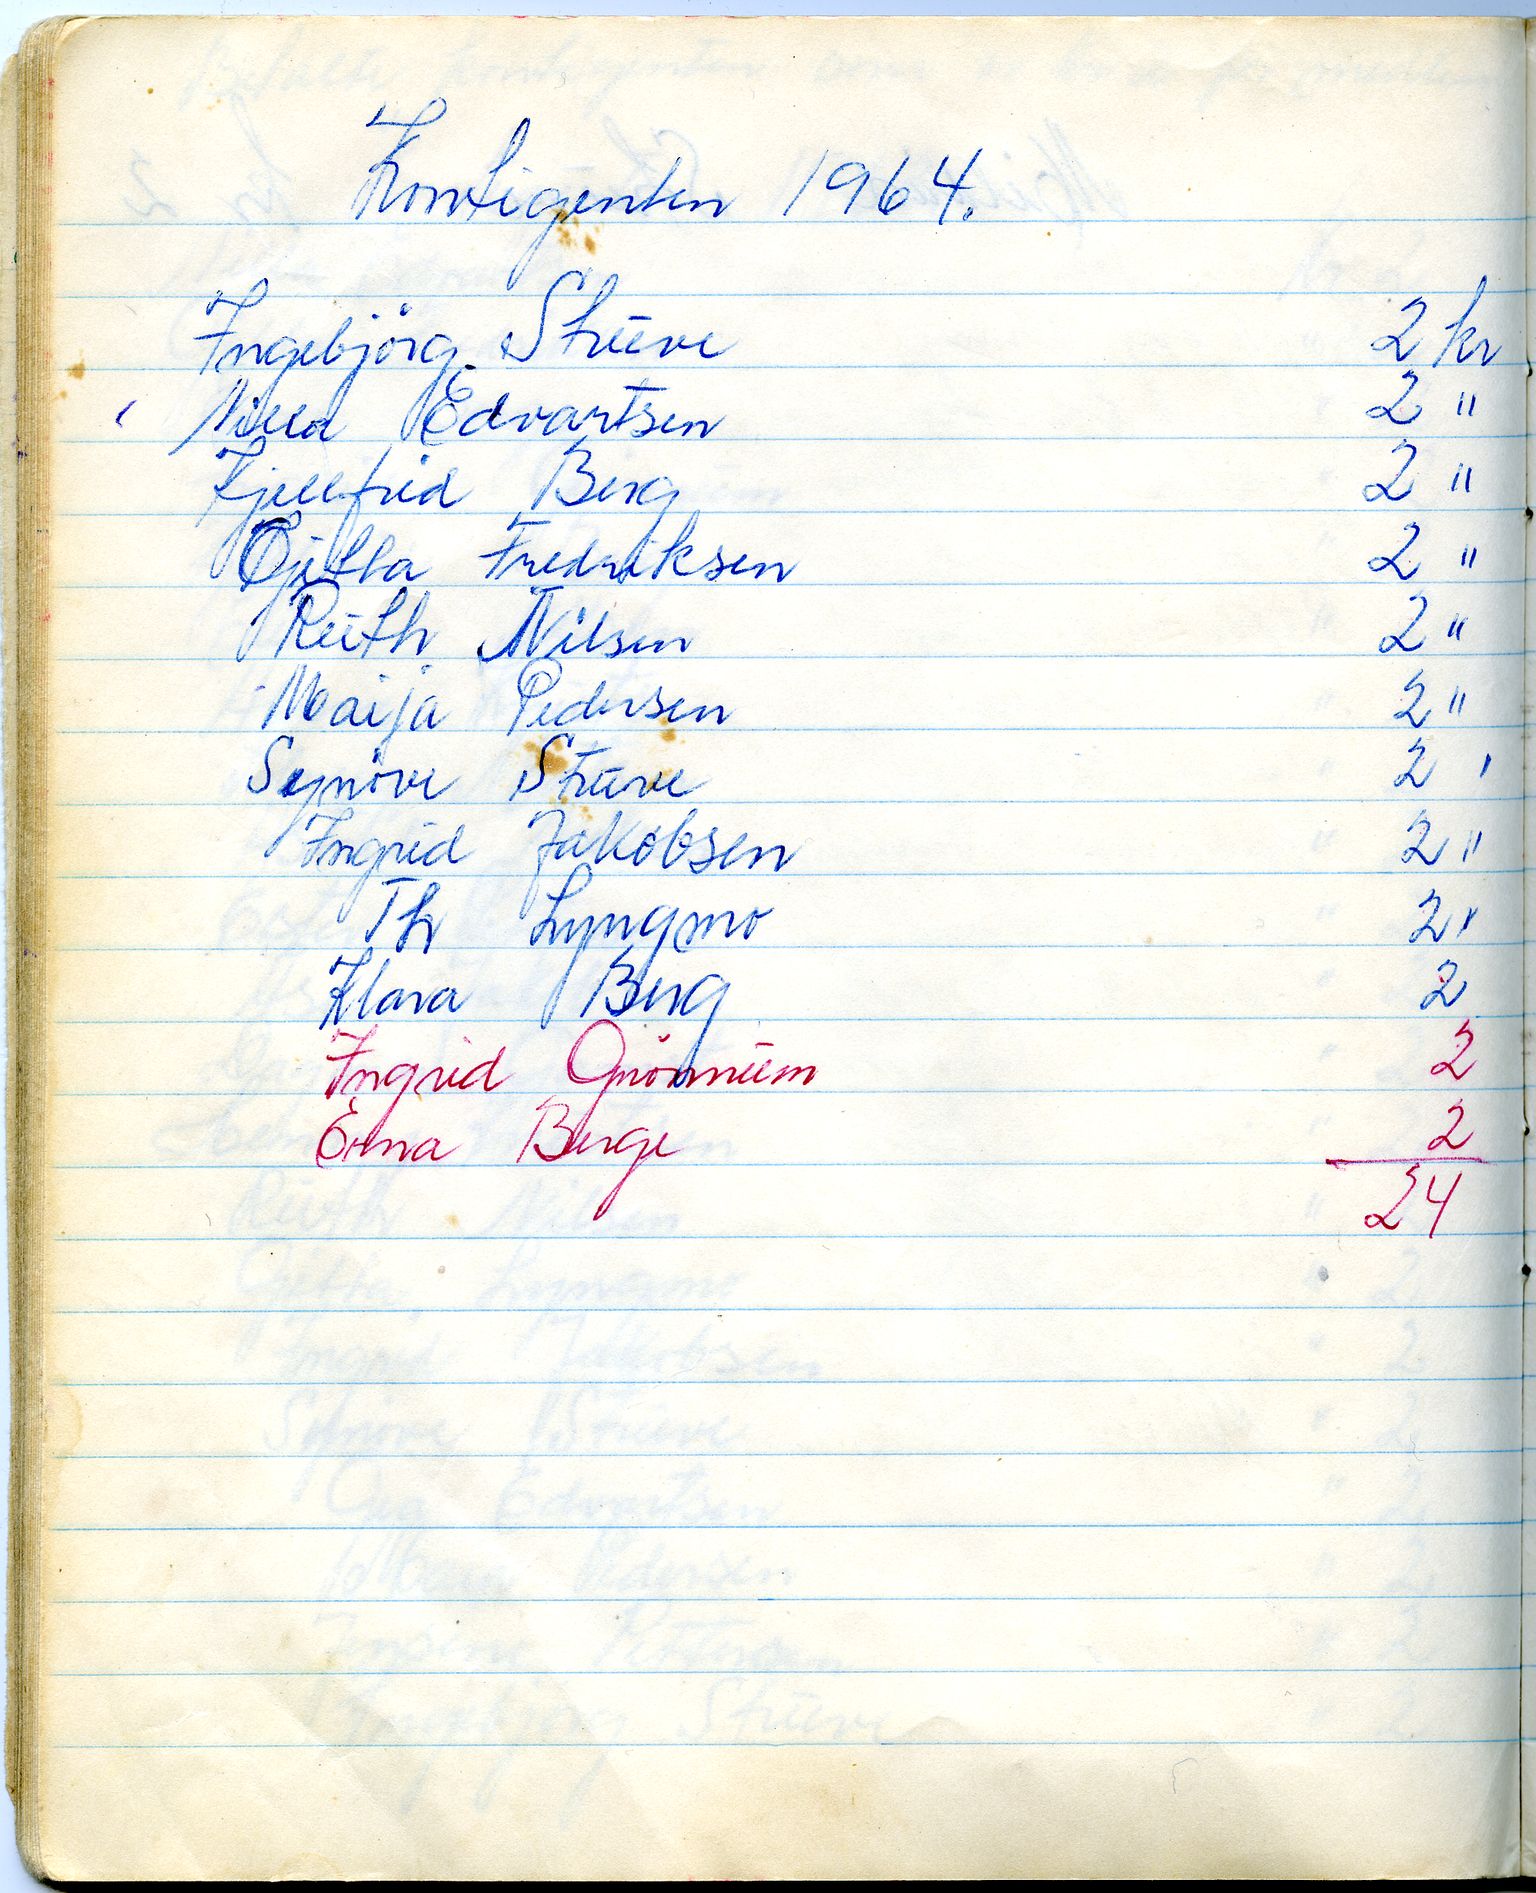 Kontigenten 1964.
Ingebjörg Strüve 2 kr
Nilla Edvartsen 2 "
Kjellfrid Berg 2 "
Gjetta Fredriksen 2 "
Rüth Nilsen 2 "
Maija Pedersen 2 "
Synöve Strüve 2 "
Ingrid Jakobsen 2 "
Th Lyngmo 2 "
Klara Berg 2
Ingrid Grönnüm 2
Erna Berge 2
24